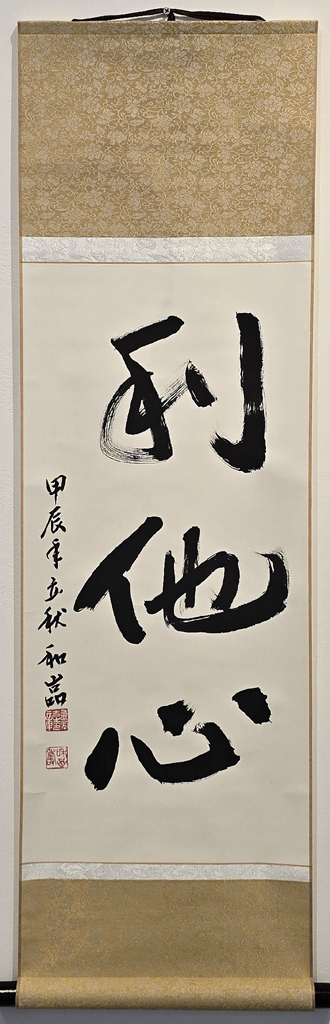 利他心
甲辰年立秋和嵓